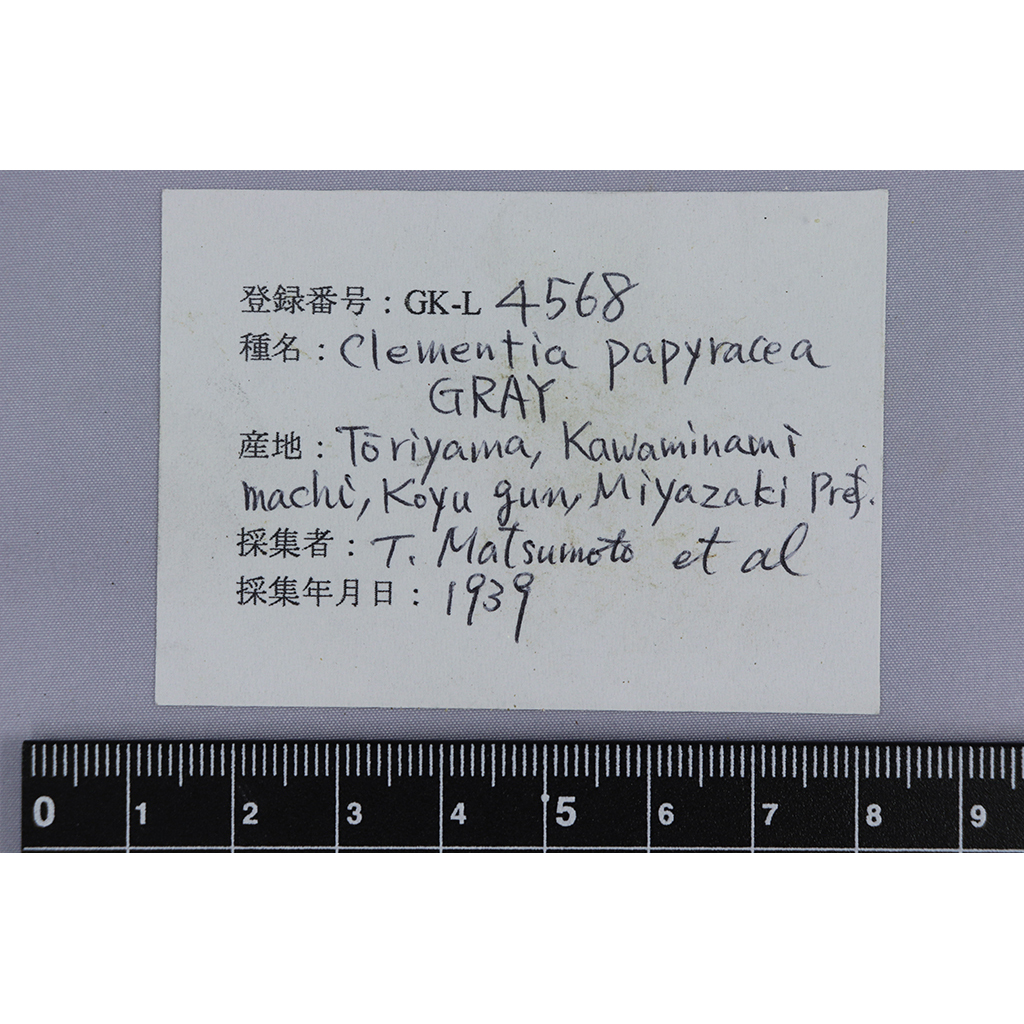 登録番号 : GK-L 4568
種名 : Clementia papyracea
GRAY
産地 : Tōriyama, Kawaminami
machi, Koyu gun, Miyazaki Pref.
採集者 : T. Matsumoto et al
採集年月日 : 1939
0 1 2 3 4 5 6 7 8 9